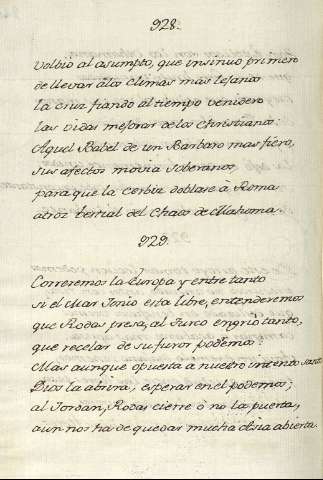 928.
Volbió al asumpto, que insinuó primero
de llevar álos climas más lejanos
la cruz fiando al tiempo venidero
las vidas mejorar delos Christianos:
Aquel Babel de un Barbaro mas fiero,
sus afectos movia soberanos,
para que la cerbiz doblase à Roma
atroz bestial del Chaos de Mahoma.
929.
Correremos la Europa y entre tanto
si el Mar Jonio esta libre, entenderemos
que Rodas presa, al Turco engrió tanto,
que recelar de su furor podemos;
Mas aunque opuesta a nuestro intento santo
Dios la abrirá, esperar en el podemos;
al Jordan, Rodas cierre ò no la puerta,
aun nos ha de quedar mucha Asia abierta.